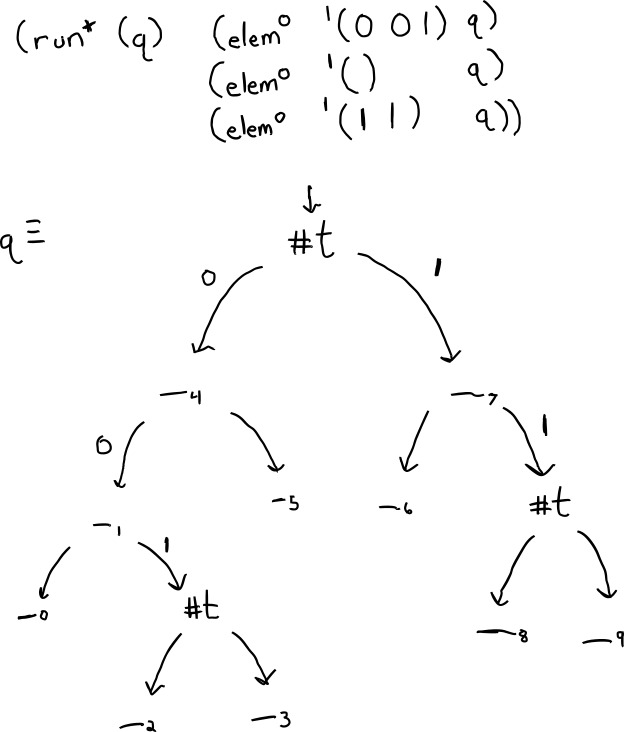 (run* (q) (elemᵒ '(0 0 1) q)
(elemᵒ '() q)
(elemᵒ '(1 1) q))
q ≡ #t
0 1
_4 _7
0 1
_5 _6 #t
_1 1
_0 #t _8 _9
_2 _3